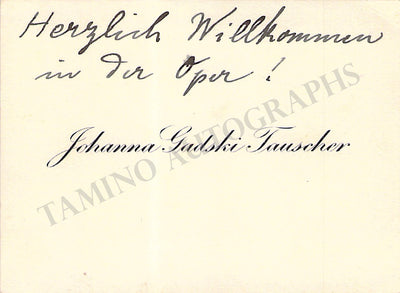 Herzlich Willkommen
in der Oper !
Johanna Gadski Tauscher
TAMINO AUTOGRAPHS